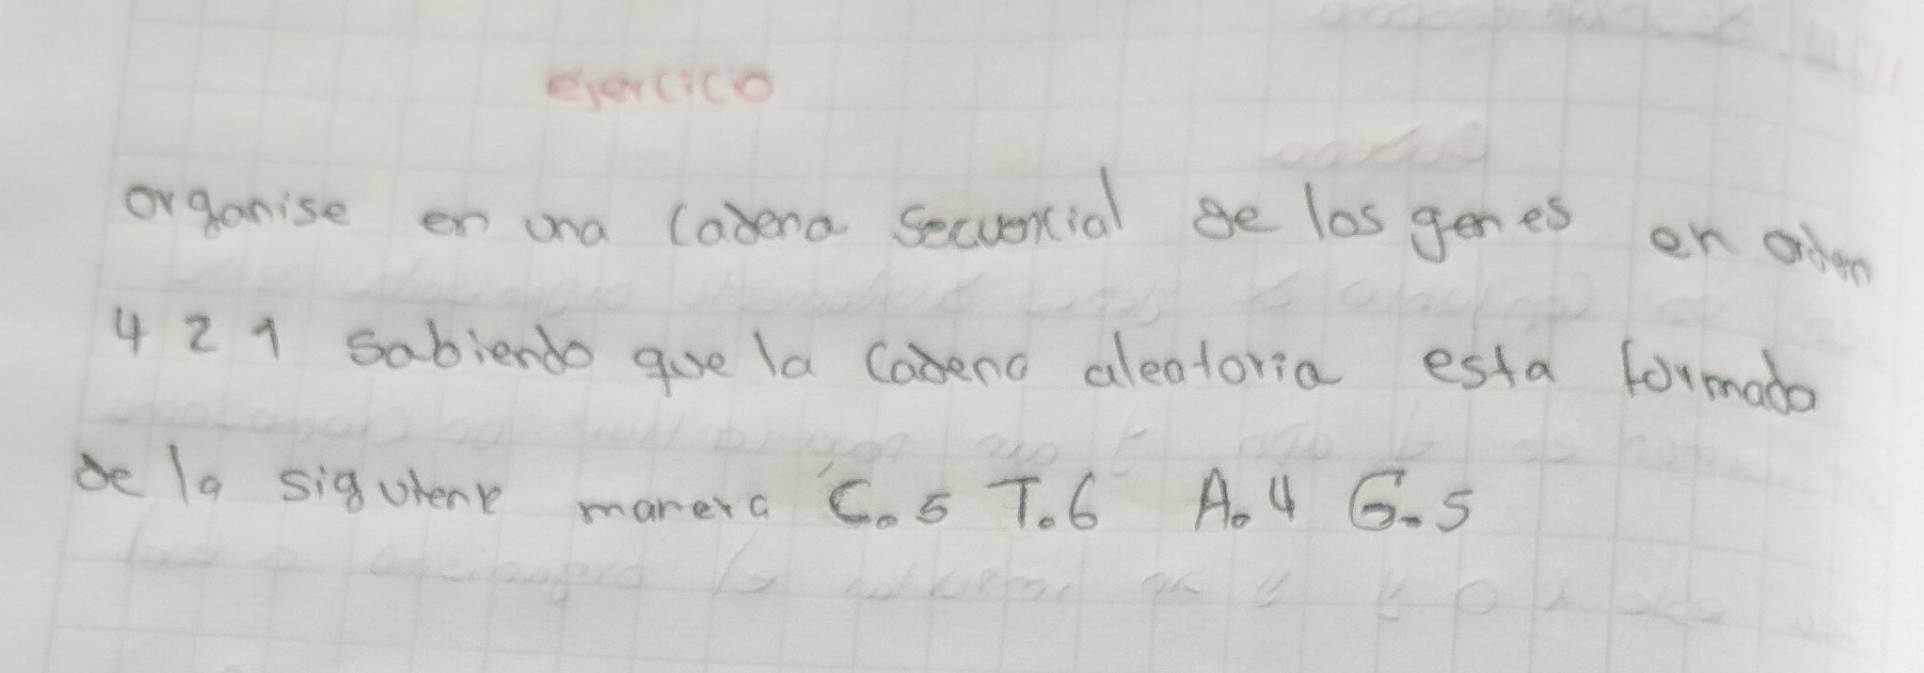 ejercico
organise en una cadena secuencial de los genes en orden
4 2 1 sabiendo que la cadena aleatoria esta formada
de la siguiente manera C. 5 T. 6 A. 4 G. 5